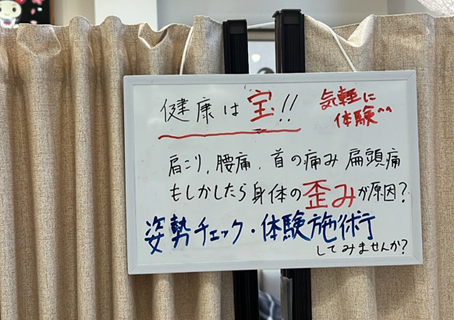 健康は宝!!
気軽に
体験^^
肩こり、腰痛、首の痛み 扁頭痛
もしかしたら身体の歪みが原因?
姿勢チェック・体験施術
してみませんか?